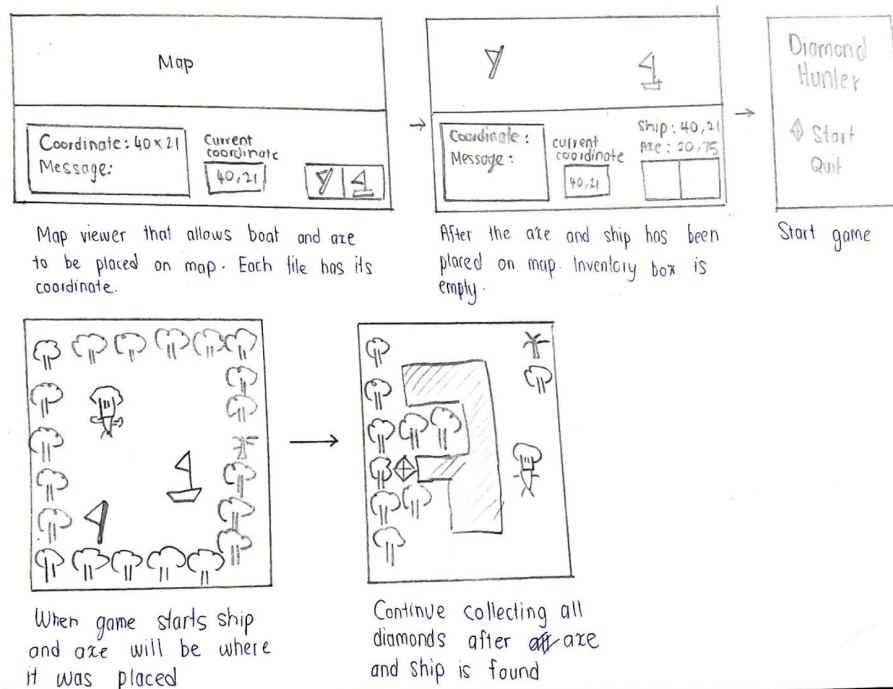 Map
Coordinate: 40×21
Message:
Current
coordinate
40,21
Map viewer that allows boat and axe
to be placed on map. Each tile has its
coordinate.
Coordinate:
Message:
current
coordinate
40,21
Ship: 40,21
Axe: 20,75
After the axe and ship has been
placed on map. Inventory box is
empty.
Diamond
Hunter
Start
Quit
Start game
When game starts ship
and axe will be where
it was placed
Continue collecting all
diamonds after axe
and ship is found